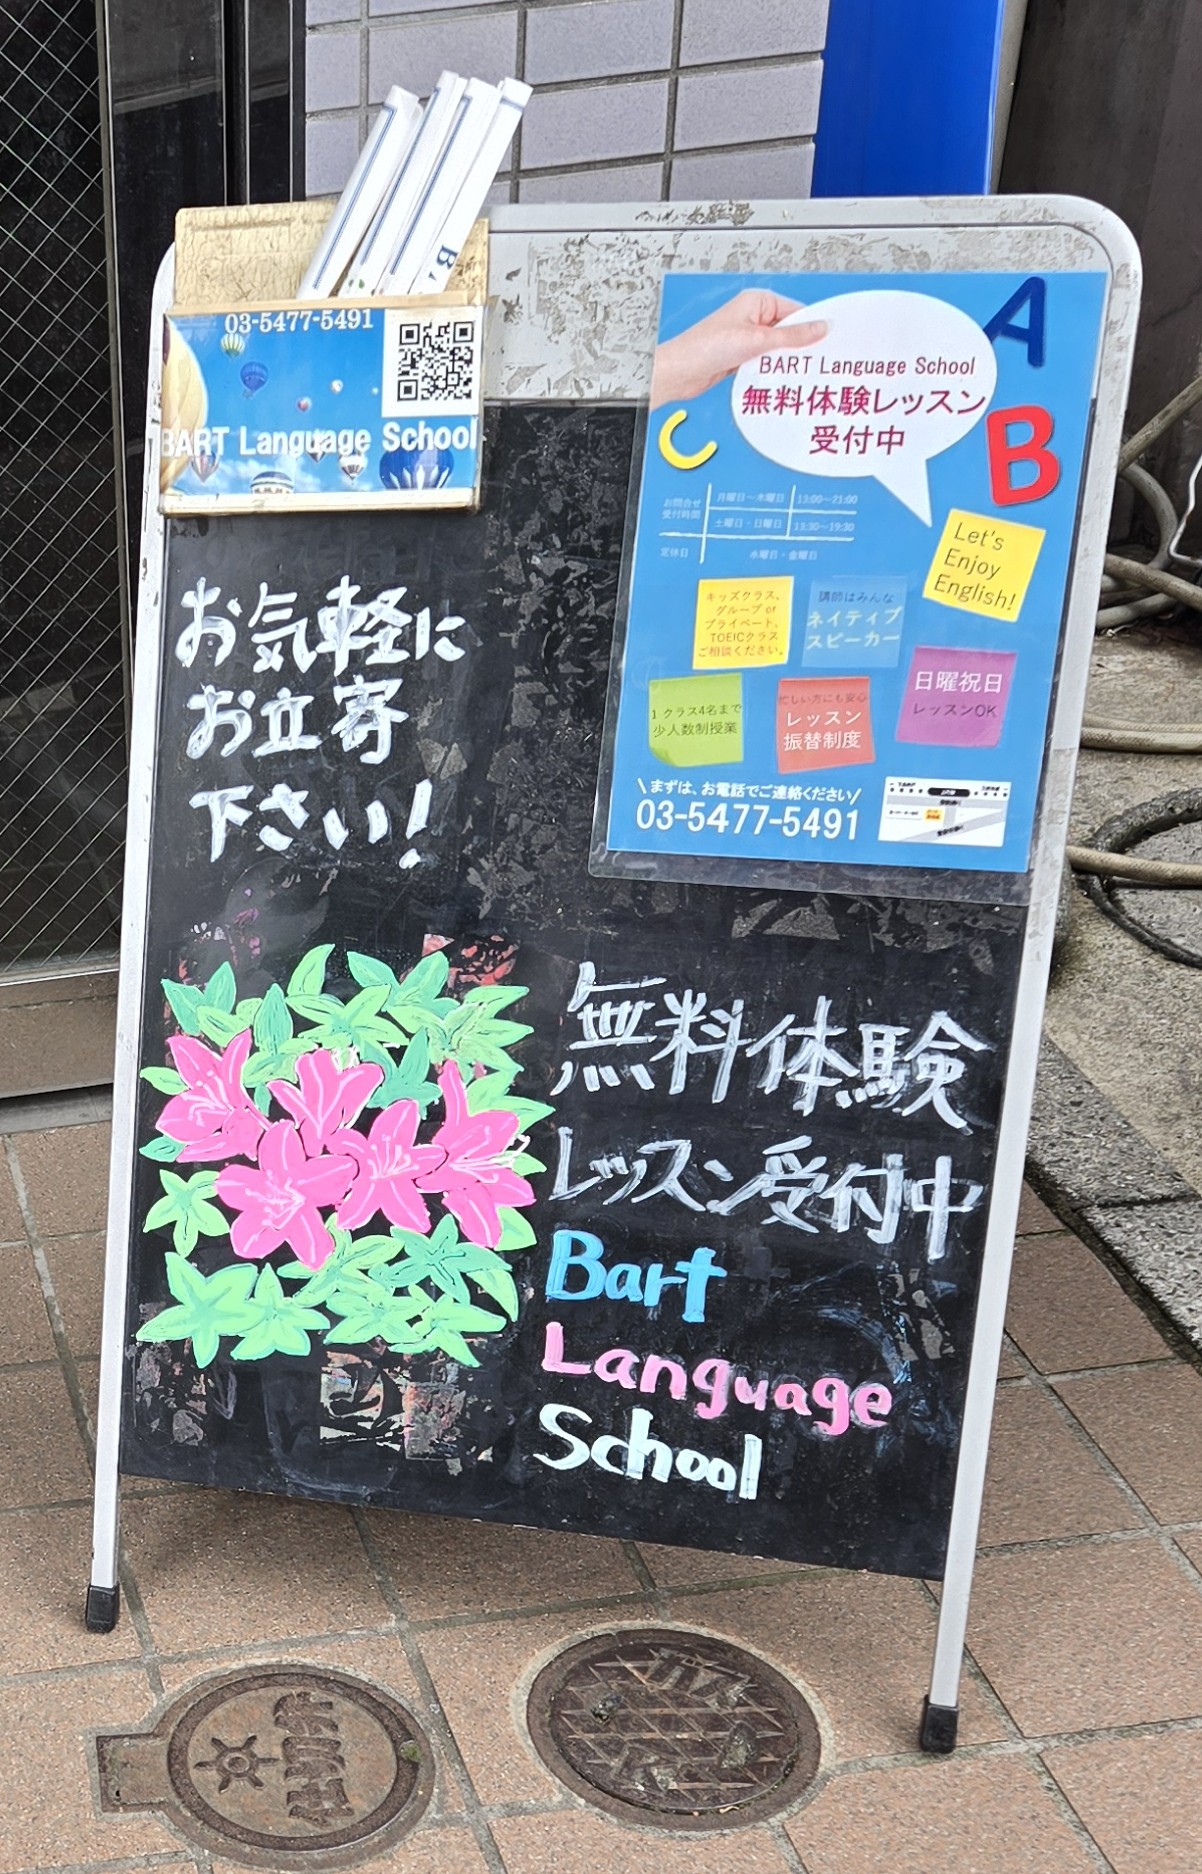 03-5477-5491
BART Language School
お気軽に
お立寄
下さい!
BART Language School
無料体験レッスン
受付中
A
B
C
お問合せ
受付時間
月曜日~木曜日 13:00~21:00
土曜日・日曜日 13:30~19:30
定休日 水曜日・金曜日
Let's
Enjoy
English!
キッズクラス、
グループ or
プライベート、
TOEICクラス
ご相談ください。
講師はみんな
ネイティブ
スピーカー
1 クラス4名まで
少人数制授業
忙しい方にも安心
レッスン
振替制度
日曜祝日
レッスンOK
\ まずは、お電話でご連絡ください /
03-5477-5491
無料体験
レッスン受付中
Bart
Language
School